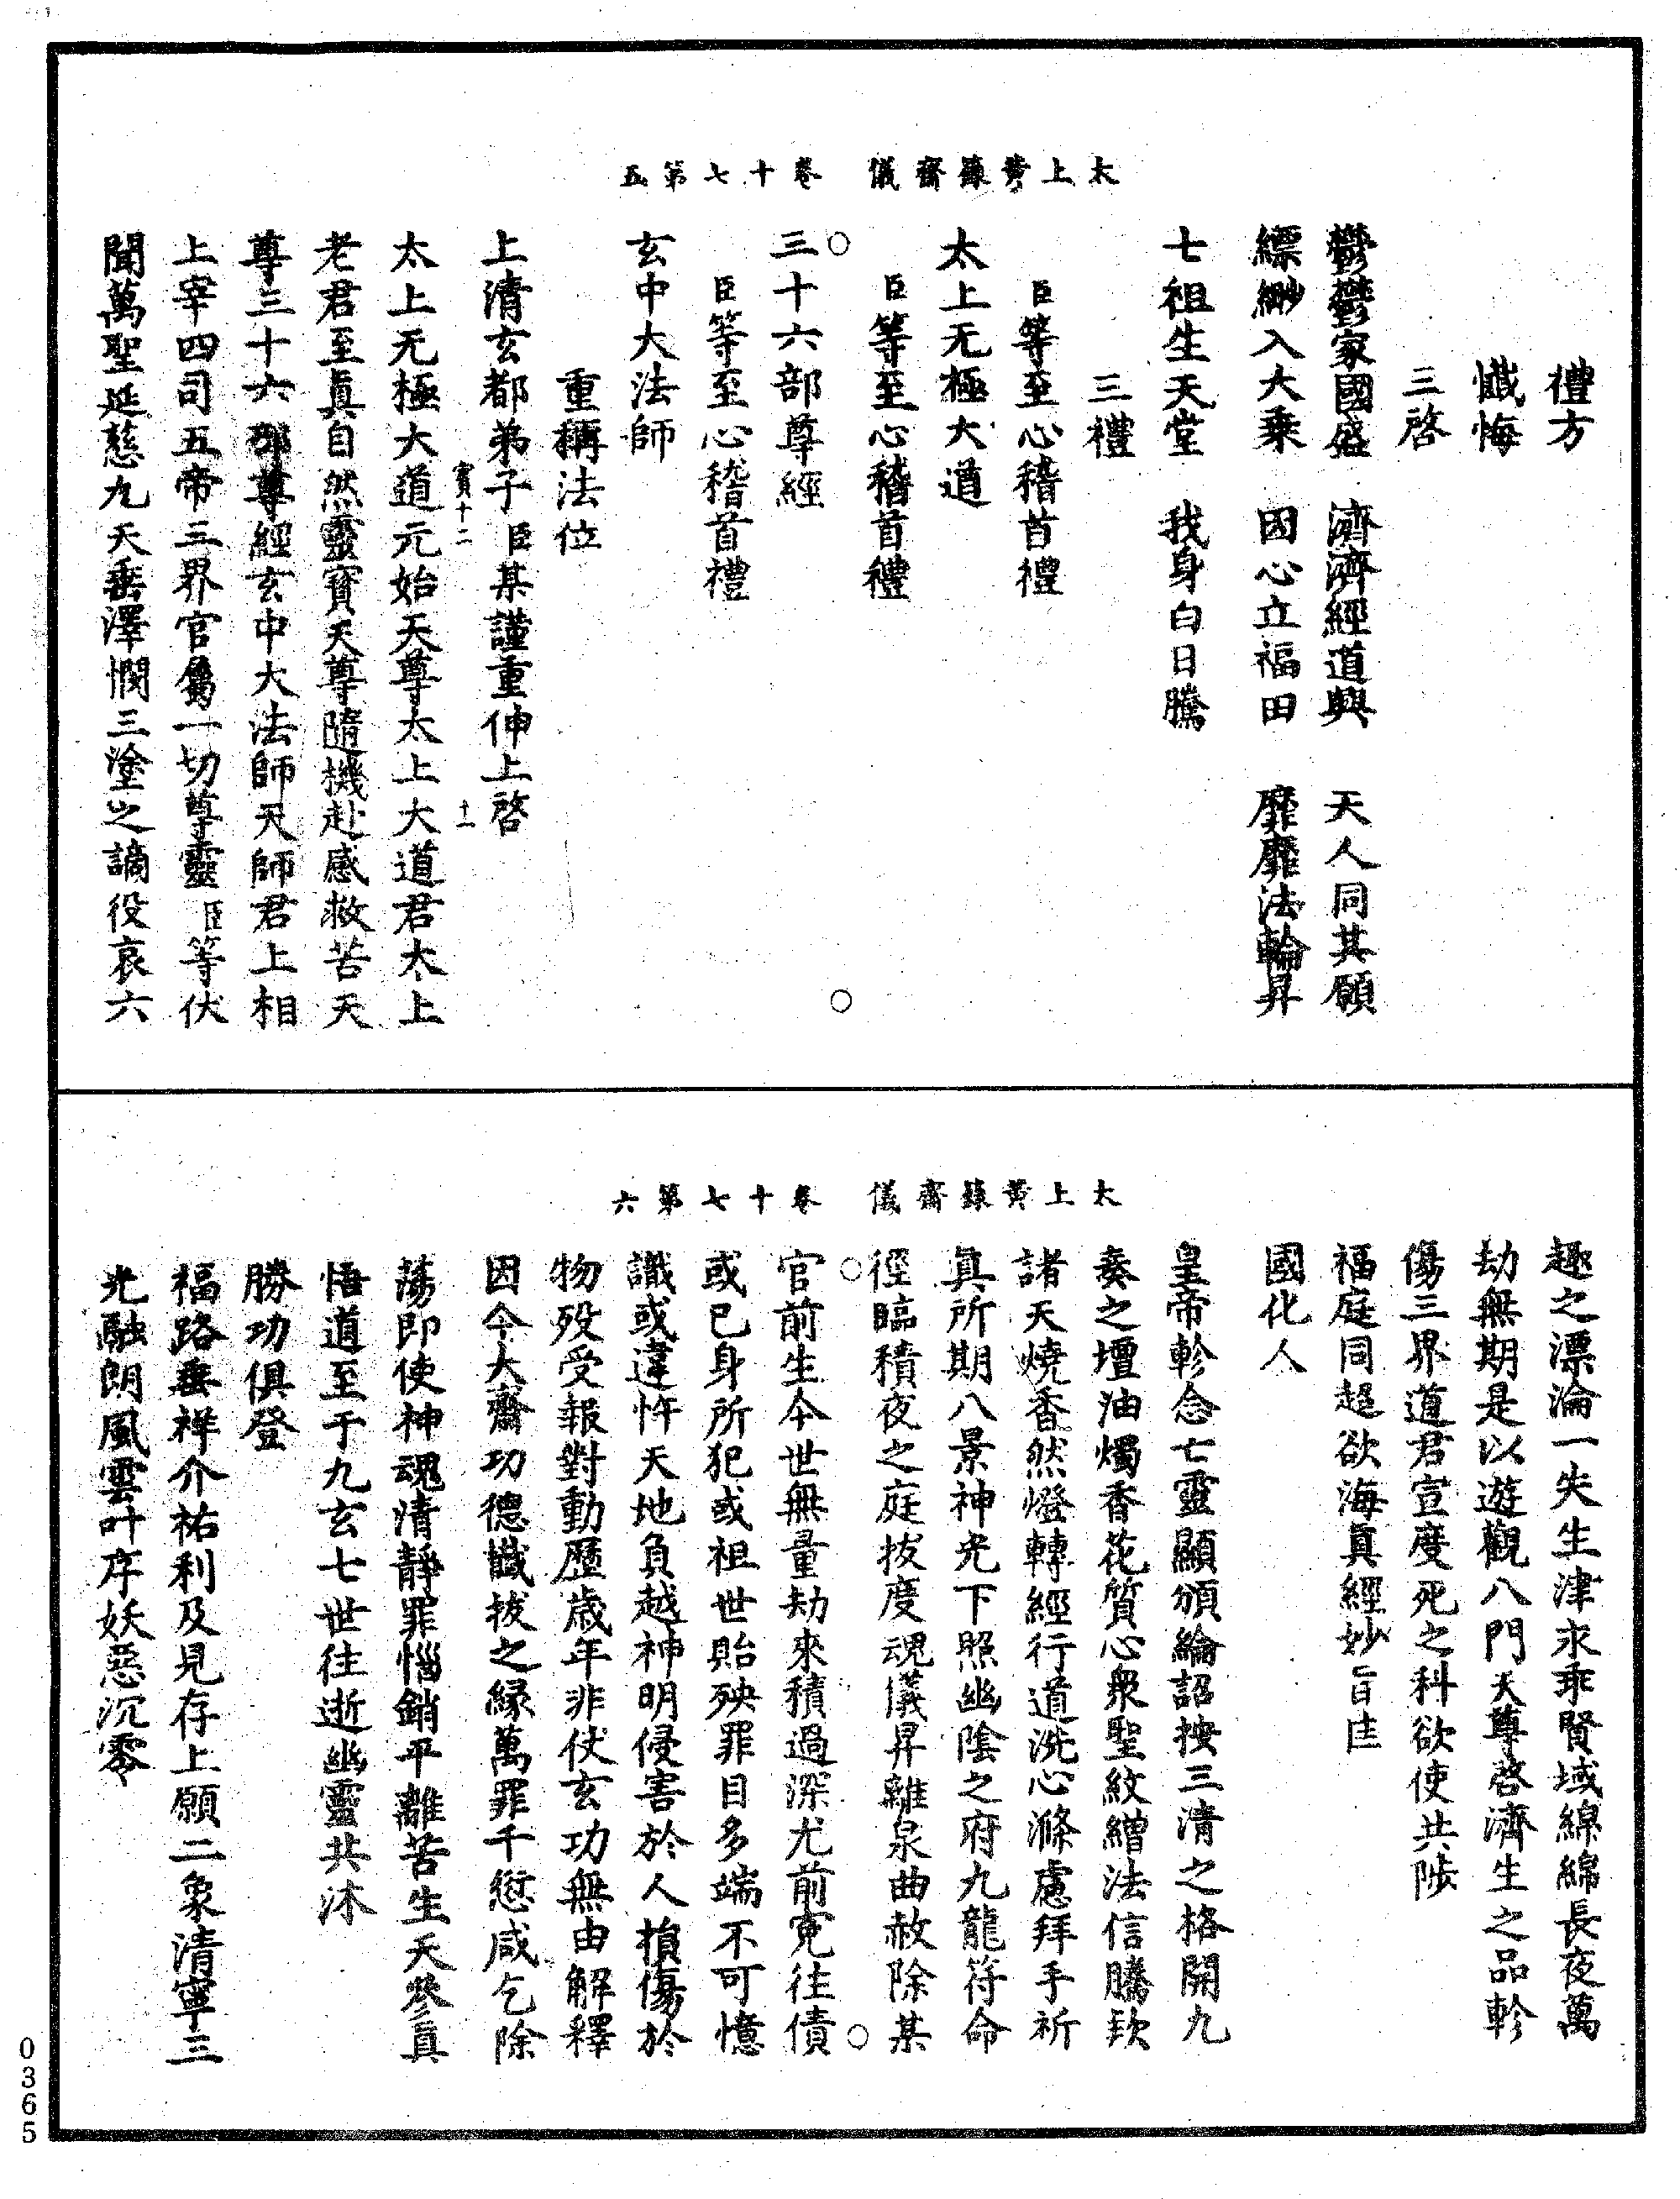 太上黃籙齋儀　卷十七第五
禮方
懺悔
三啓
鬱鬱家國盛　濟濟經道興　天人同其願
縹緲入大乘　因心立福田　靡靡法輪昇
七祖生天堂　我身白日騰
三禮
臣等至心稽首禮
太上无極大道
臣等至心稽首禮
三十六部尊經
臣等至心稽首禮
玄中大法師
重稱法位
上清玄都弟子臣某謹重伸上啓
賓十二　十一
太上无極大道元始天尊太上大道君太上
老君至真自然靈寶天尊隨機赴感救苦天
尊三十六部尊經玄中大法師天師君上相
上宰四司五帝三界官屬一切尊靈臣等伏
聞萬聖延慈九天垂澤憫三塗之謫役哀六
太上黃籙齋儀　卷十七第六
趣之漂淪一失生津永乖賢域綿綿長夜萬
劫無期是以遊觀八門天尊啓濟生之品軫
傷三界道君宣度死之科欲使共陟
福庭同超欲海真經妙旨匡
國化人
皇帝軫念七靈顯頒綸詔按三清之格開九
奏之壇油燭香花質心衆聖紋繒法信騰欵
諸天燒香然燈轉經行道洗心滌慮拜手祈
真所期八景神光下照幽陰之府九龍符命
徑臨積夜之庭拔度魂儀昇離泉曲赦除某
官前生今世無量劫來積過深尤前寃往債
或已身所犯或祖世貽殃罪目多端不可憶
識或違忤天地負越神明侵害於人損傷於
物歿受報對動歷歲年非仗玄功無由解釋
因今大齋功德懺拔之緣萬罪千愆咸乞除
蕩即使神魂清靜罪惱銷平離苦生天叅真
悟道至于九玄七世往逝幽靈共沐
勝功俱登
福路垂祥介祐利及見存上願二象清寧三
光融朗風雲叶序妖惡沉零
0365